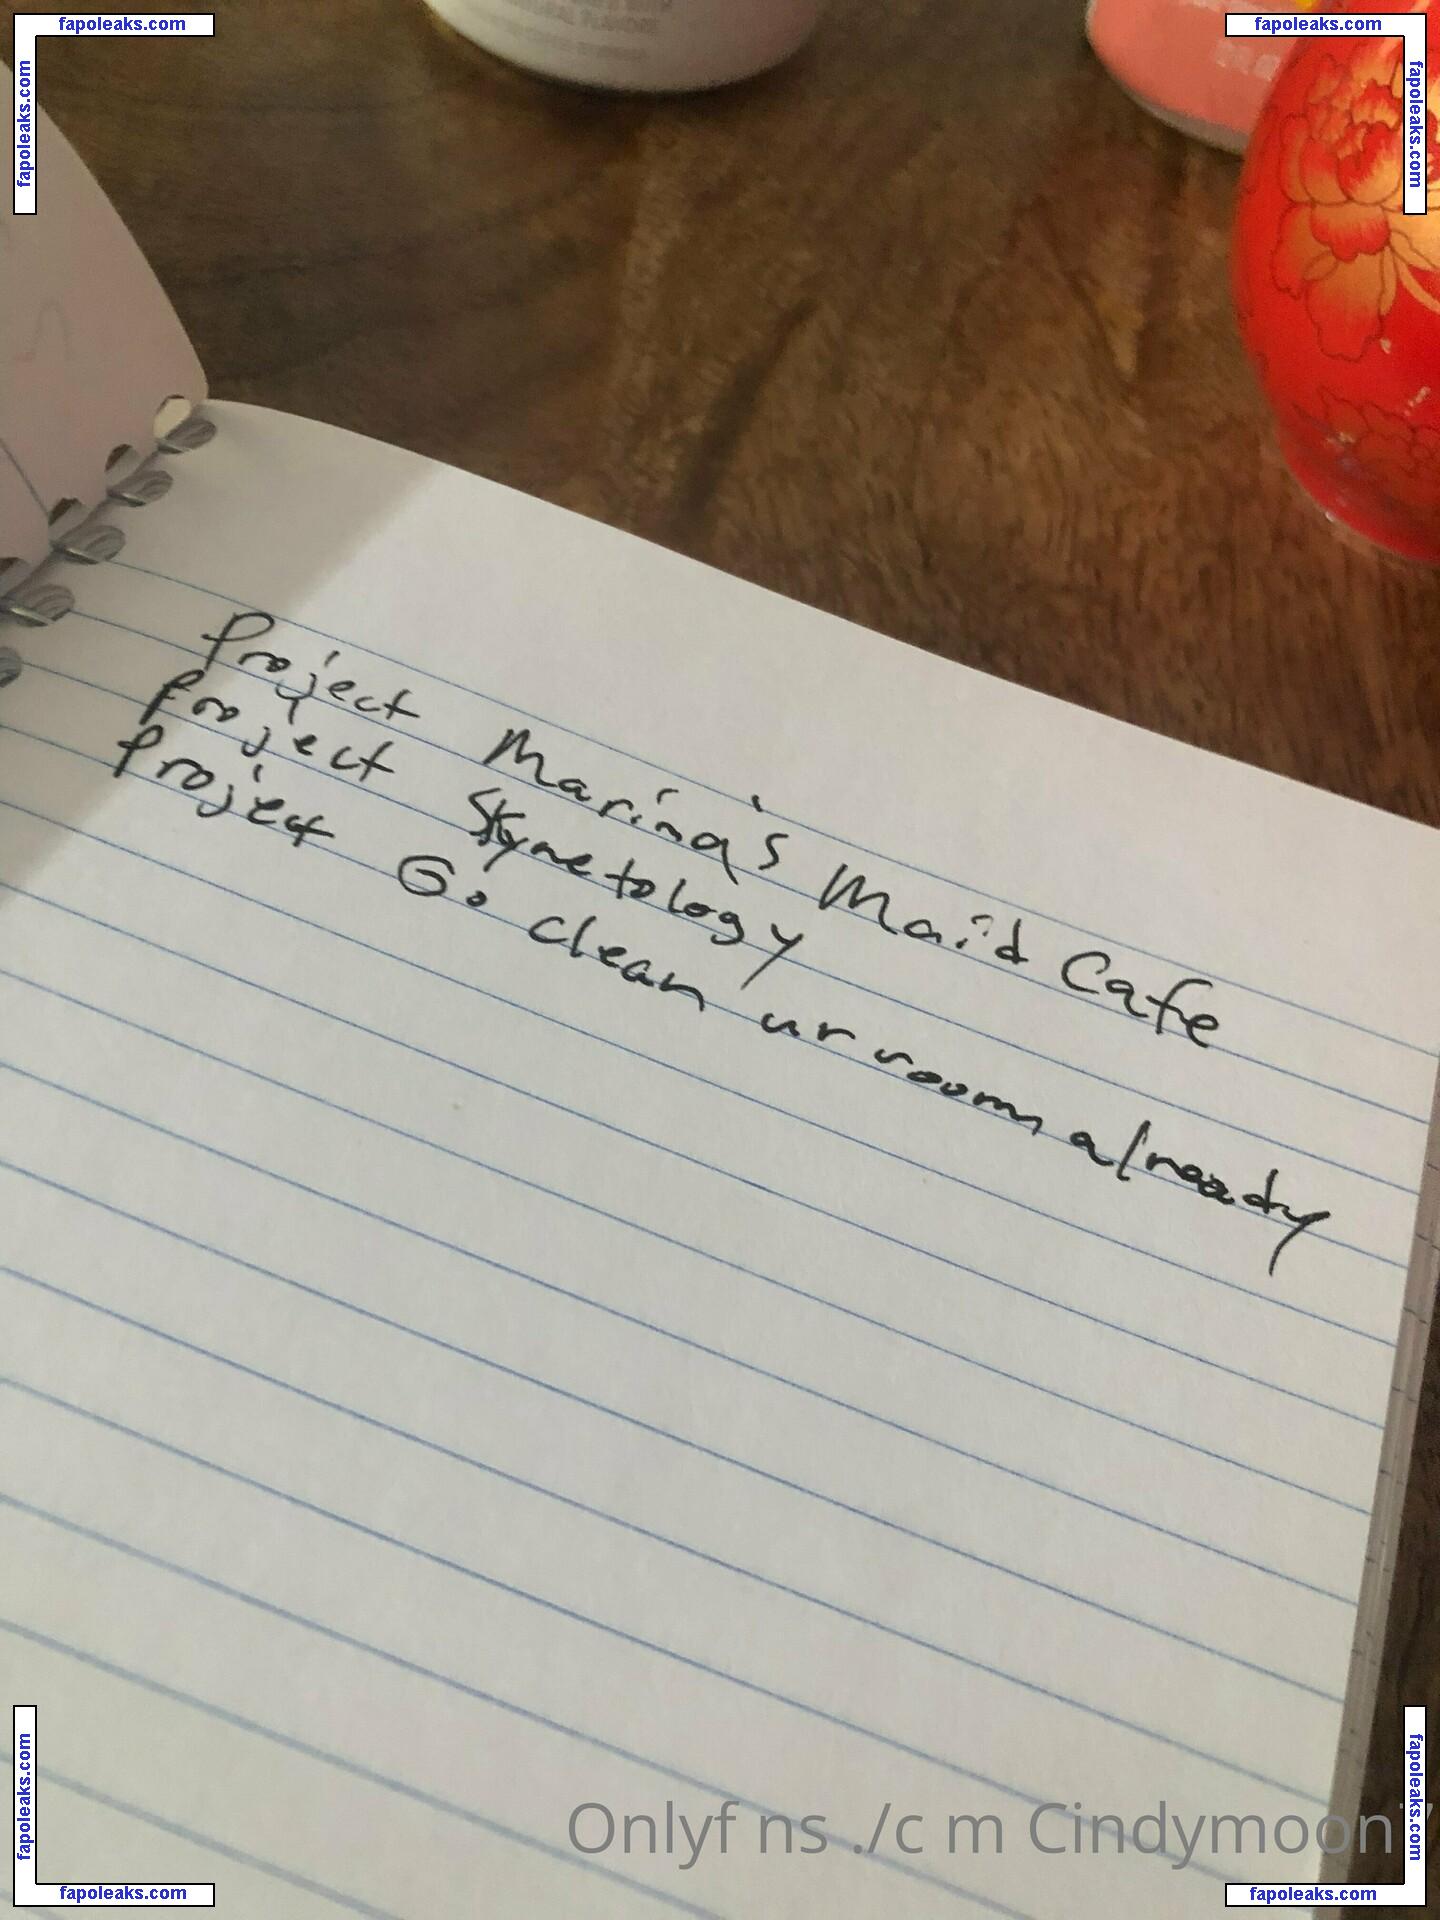 fapoleaks.com fapoleaks.com
fapoleaks.com fapoleaks.com
NATURAL FLAVORS
Project Marina's Maid Cafe
Project Skynetology
Project Go clean ur room already
Onlyf ns ./c m Cindymoon
fapoleaks.com fapoleaks.com
fapoleaks.com fapoleaks.com